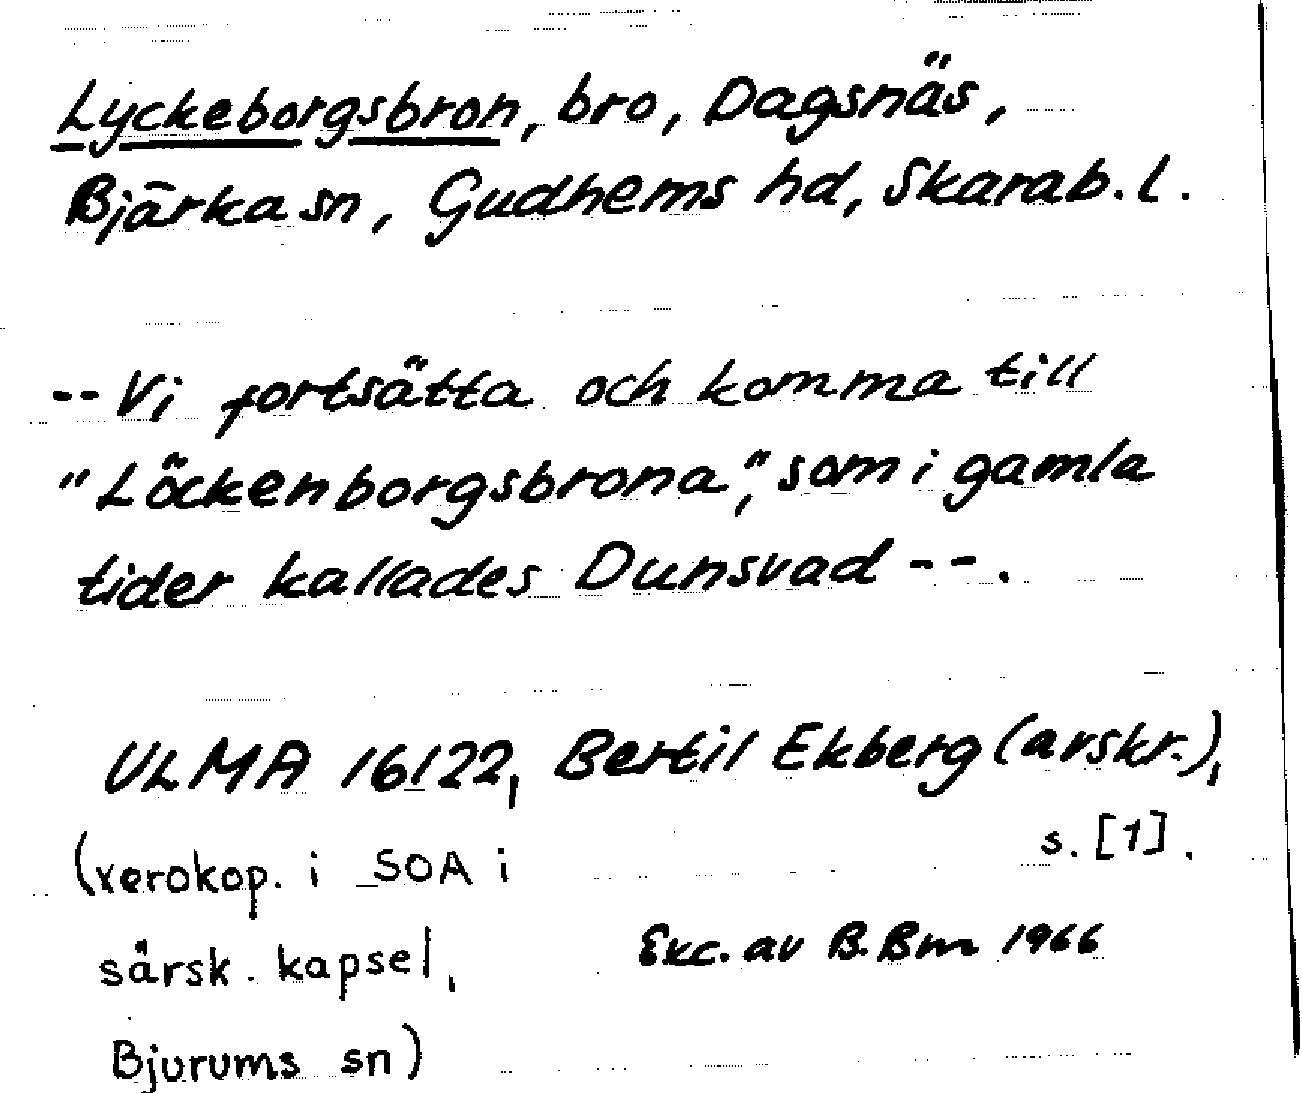 Lyckeborgsbron, bro, Dagsnäs,
Bjärka sn, Gudhems hd, Skarab. l.
-- Vi fortsätta och komma till
"Löckenborgsbrona", som i gamla
tider kallades Dunsvad --.
ULMA 16122, Bertil Ekberg (avskr.),
s. [1].
(xerokop. i SOA i
särsk. kapsel,
Bjurums sn)
Exc. av B. Bm 1966